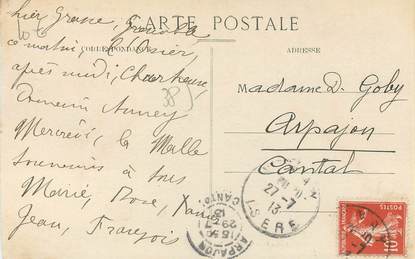 CARTE POSTALE
CORRESPONDANCE
ADRESSE
hier Grasse Grenoble
ce matin, l'Osier
après midi, Chartreuse,
Demain Annecy
Mercredi, la Malle
Souvenirs à tous
Marie, Rose,
Jean, François
38
Madame D. Goby
Arpajon
Cantal
27-7
13
ISERE
ARPAJON
CANTAL
29-7
13
10